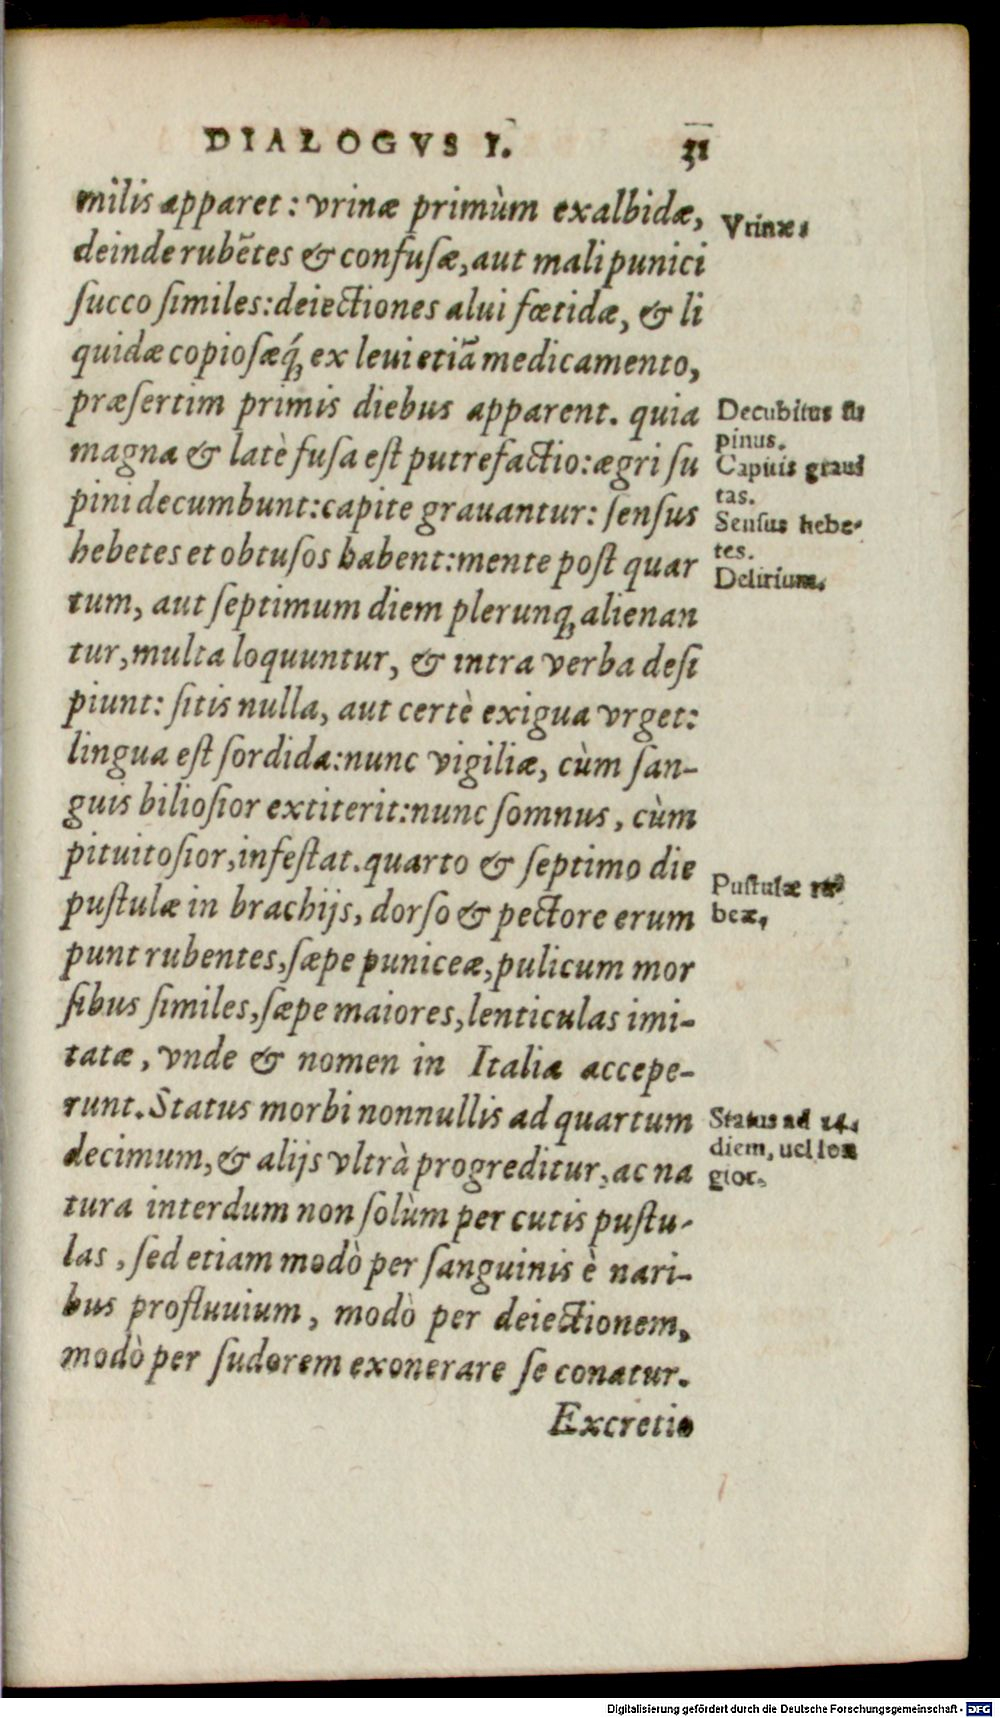 DIALOGVS I. 31
milis apparet: vrinæ primùm exalbidæ,
deinde rubẽtes & confusæ, aut mali punici
succo similes: deiectiones alui fœtidæ, & li
quidæ copiosæq́; ex leui etiã medicamento,
præsertim primis diebus apparent. quia
magna & latè fusa est putrefactio: ægri su
pini decumbunt: capite grauantur: sensus
hebetes et obtusos habent: mente post quar
tum, aut septimum diem plerunq; alienan
tur, multa loquuntur, & intra verba desi
piunt: sitis nulla, aut certè exigua vrget:
lingua est sordida: nunc vigiliæ, cùm san-
guis biliosior extiterit: nunc somnus, cùm
pituitosior, infestat. quarto & septimo die
pustulæ in brachijs, dorso & pectore erum
punt rubentes, sæpe puniceæ, pulicum mor
sibus similes, sæpe maiores, lenticulas imi-
tatæ, vnde & nomen in Italia accepe-
runt. Status morbi nonnullis ad quartum
decimum, & alijs vltrà progreditur, ac na
tura interdum non solùm per cutis pustu-
las, sed etiam modò per sanguinis è nari-
bus profluuium, modò per deiectionem,
modò per sudorem exonerare se conatur.
Excretio
Vrinæ.
Decubitus su
pinus.
Capitis graui
tas.
Sensus hebe-
tes.
Delirium.
Pustulæ ru
beæ,
Status ad 14.
diem, uel lon
gior.
Digitalisierung gefördert durch die Deutsche Forschungsgemeinschaft - DFG